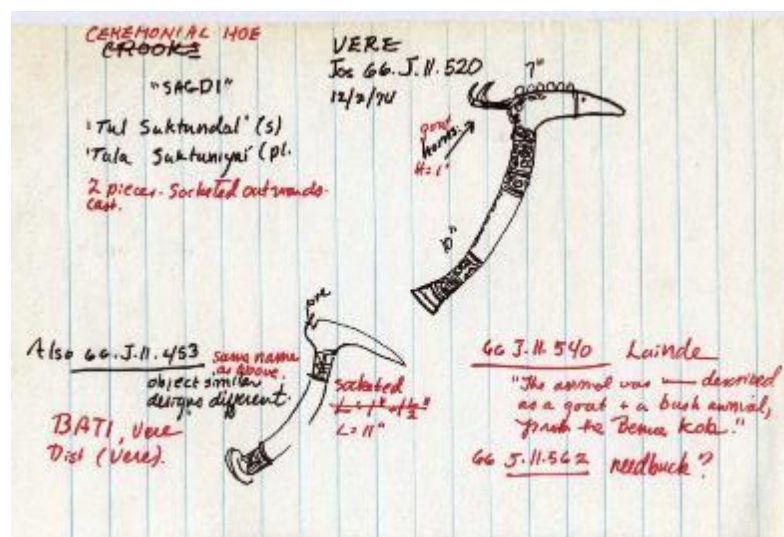 CEREMONIAL HOE
CROOKS
"SAGDI"
'Tul Suktundal' (s)
'Tala Suktuniyai' (pl.
2 pieces - Socketed outwards.
cast.
VERE
Jos 66.J.11.520
12/2/74
7"
goat
horns.
H=1"
10"
Also 66.J.11.453
same name
as above.
object similar
designs different.
BATI, Vere
Dist (Vere).
one
socketed
L = 11"
66 J.11.540 Lainde
"The animal was described
as a goat + a bush animal,
the Benue Kob."
66 J.11.562 reedbuck?